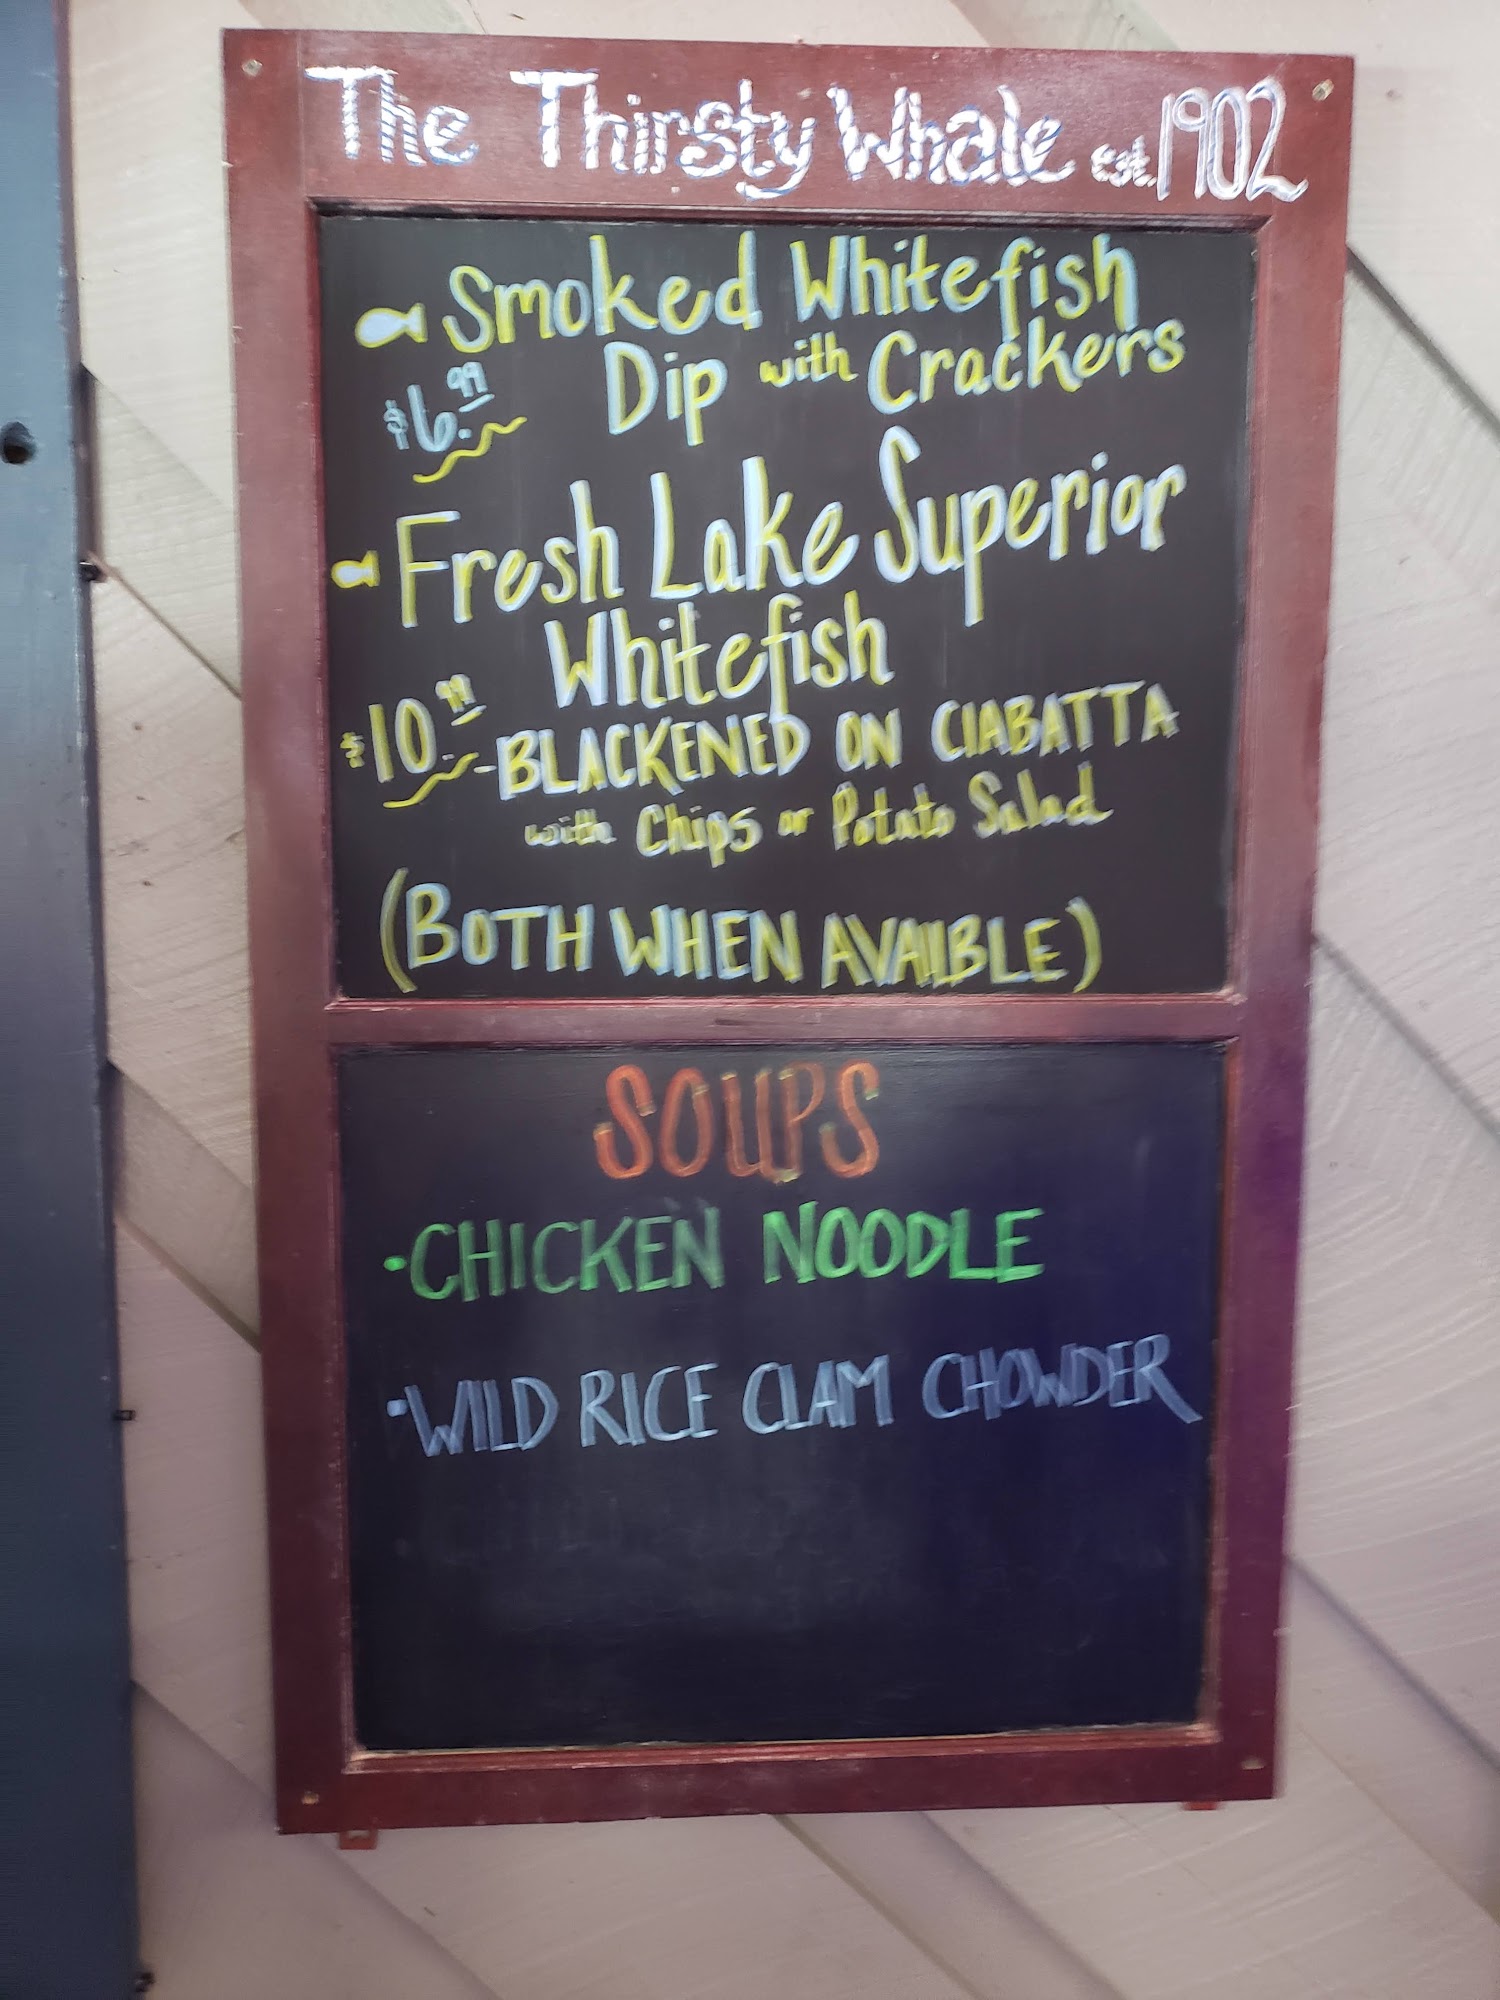 The Thirsty Whale est. 1902
Smoked Whitefish
Dip with Crackers
$6.99
Fresh Lake Superior
Whitefish
$10.99
-BLACKENED ON CIABATTA
with Chips or Potato Salad
(BOTH WHEN AVAILBLE)
SOUPS
·CHICKEN NOODLE
·WILD RICE CLAM CHOWDER